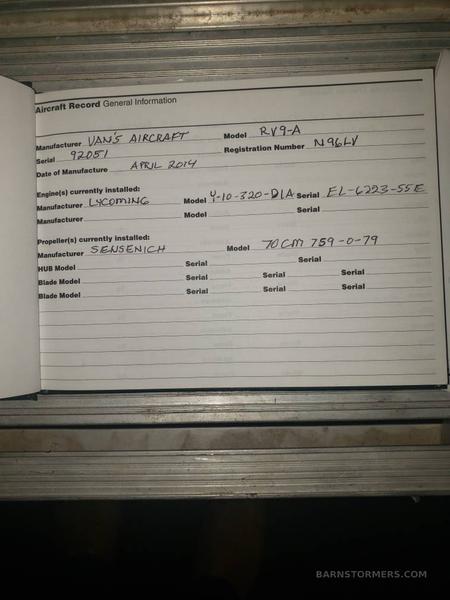 Aircraft Record General Information
Manufacturer VAN'S AIRCRAFT Model RV9-A
Serial 92051 Registration Number N96LV
Date of Manufacture APRIL 2014
Engine(s) currently installed:
Manufacturer LYCOMING Model Y-10-320-D1A Serial EL-6223-55E
Manufacturer Model Serial
Propeller(s) currently installed:
Manufacturer SENSENICH Model 70CM 759-0-79
HUB Model Serial Serial
Blade Model Serial Serial Serial
Blade Model Serial Serial Serial
BARNSTORMERS.COM